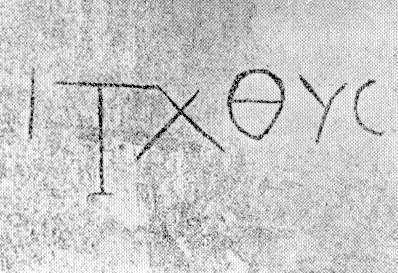 ΙΤΧΘΥC